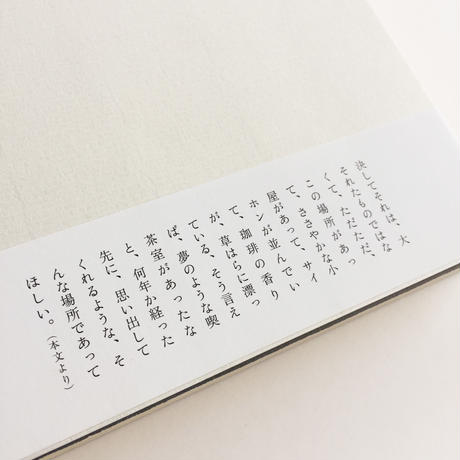 決してそれは、大
それたものではな
くて、ただただ、
この場所があっ
て、ささやかな小
屋があって、サイ
ホンが並んでい
て、珈琲の香り
が、草はらに漂っ
ている、そう言え
ば、夢のような喫
茶室があったな
と、何年か経った
先に、思い出して
くれるような、そ
んな場所であって
ほしい。（本文より）